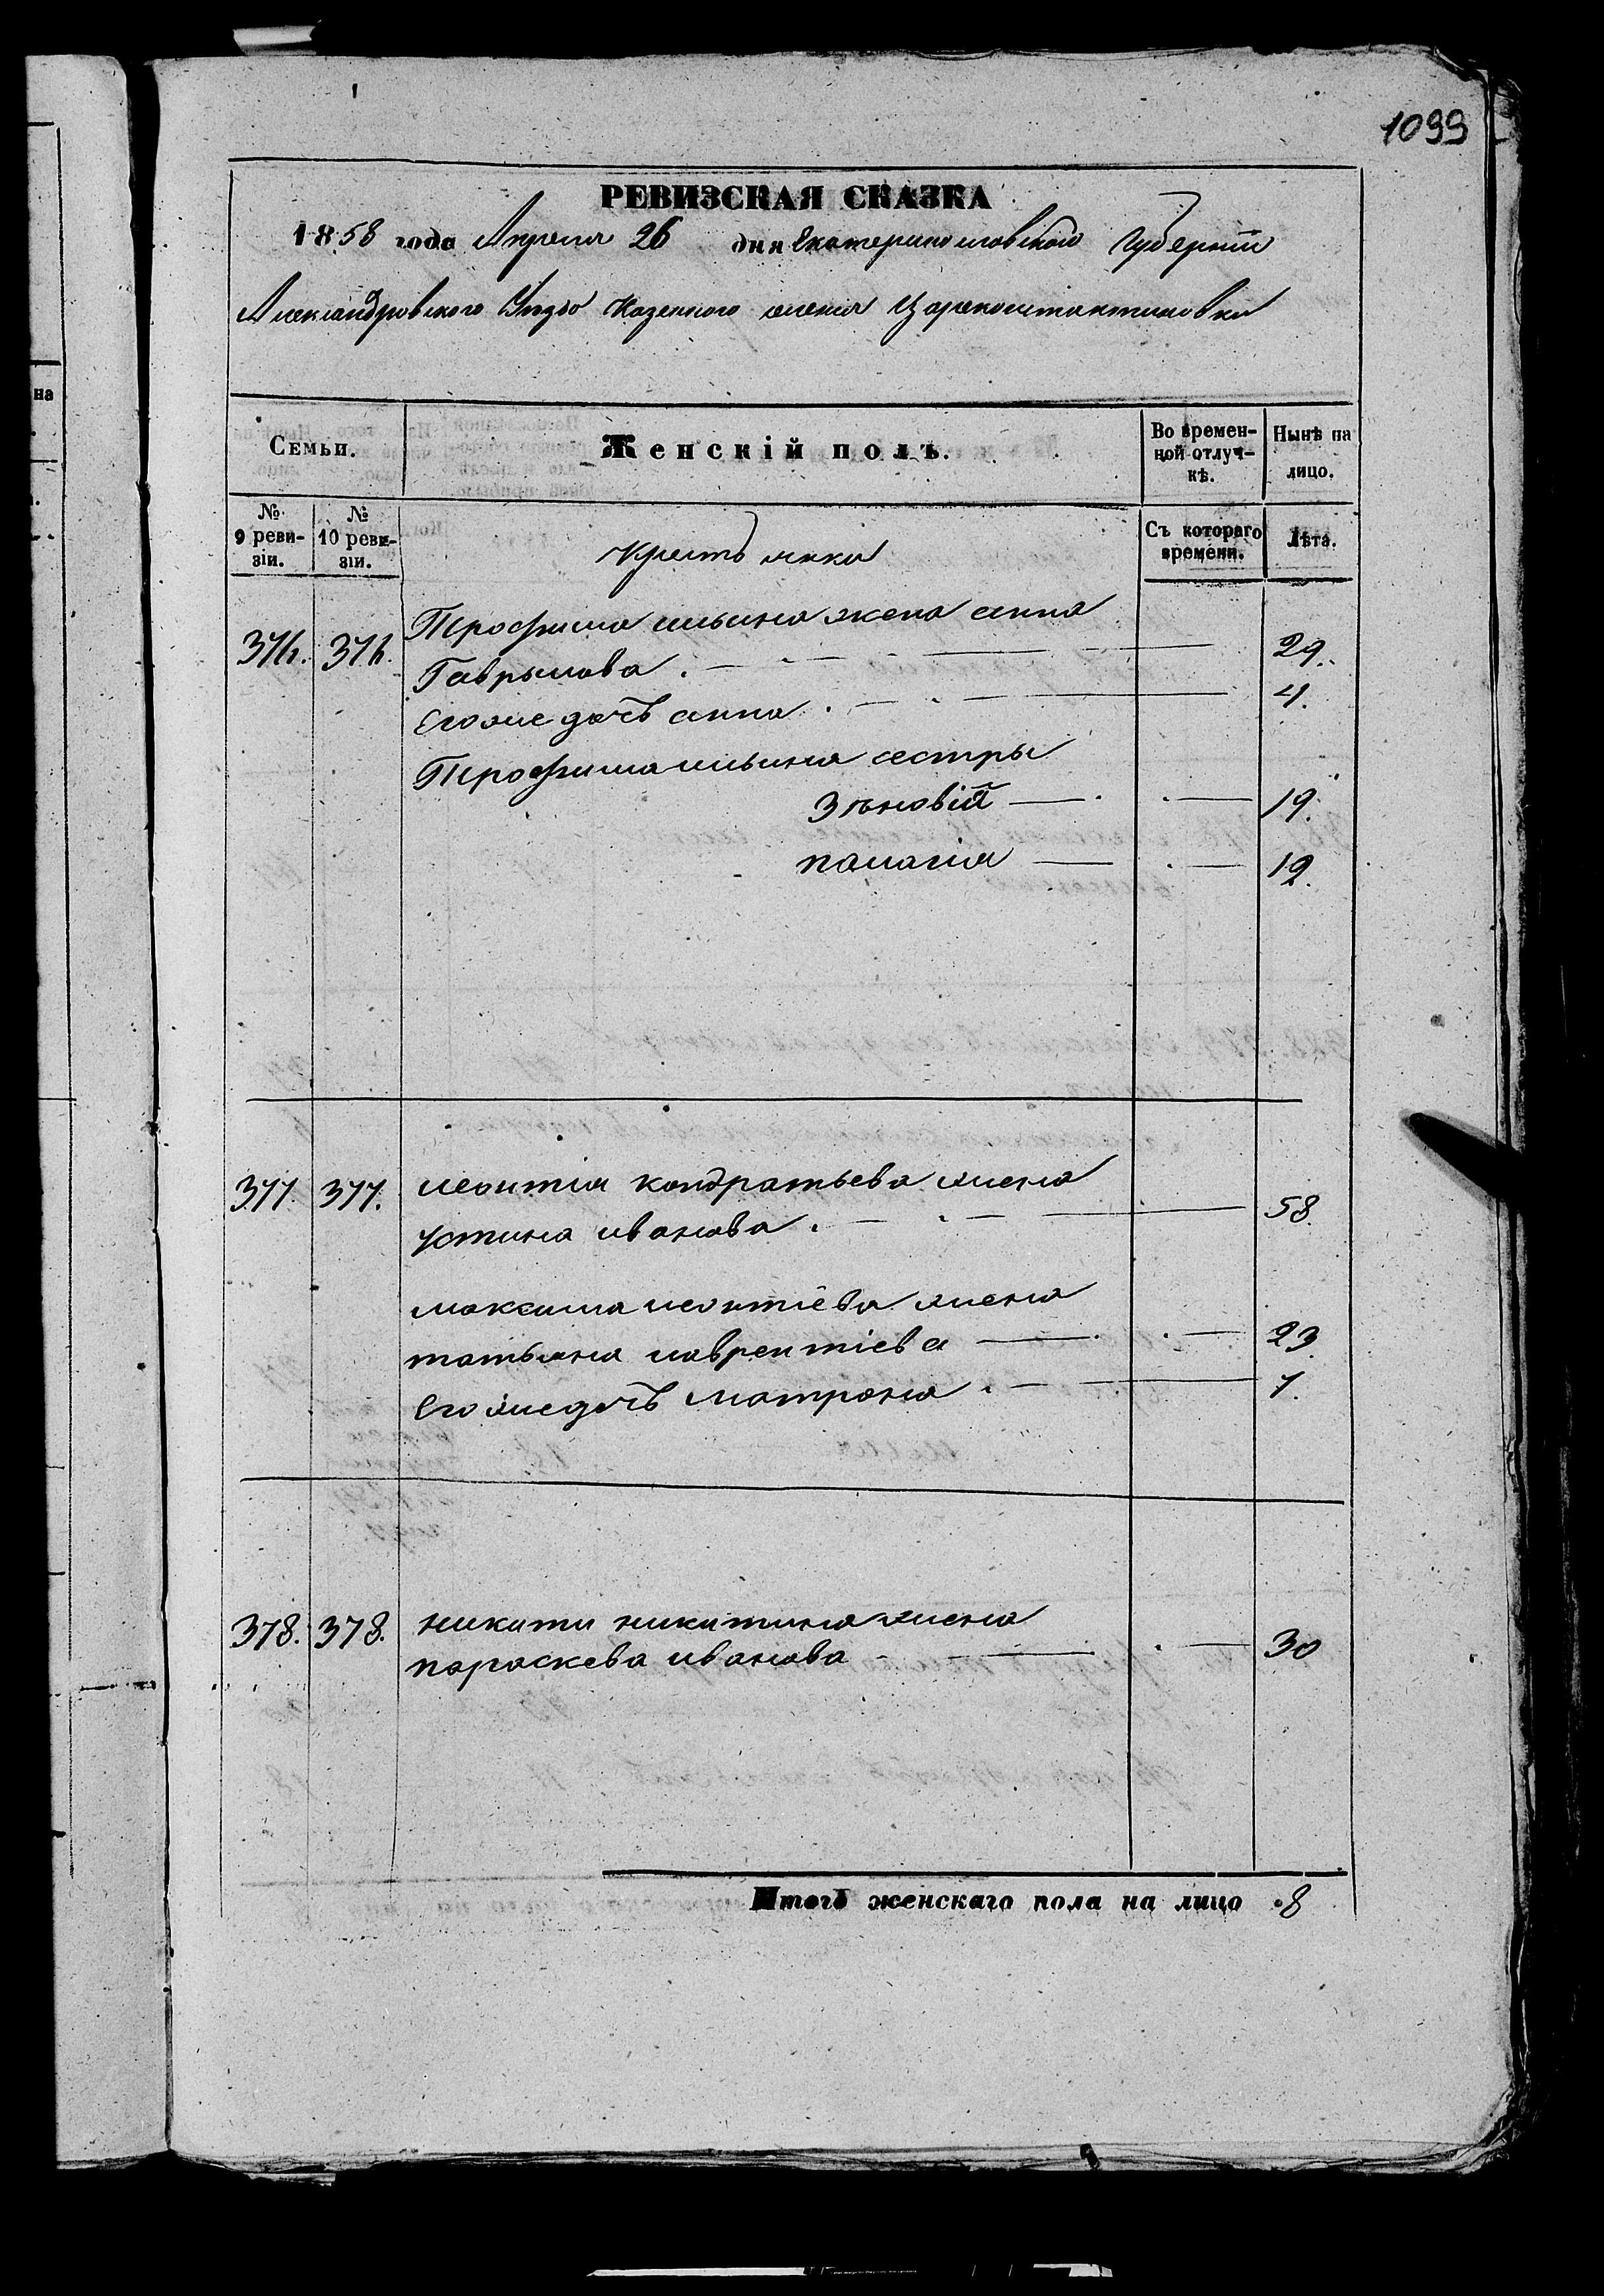 1099
РЕВИЗСКАЯ СКАЗКА
1858 года Апреля 26 дня Екатеринославской Губернiи
Александровского Уезда Казенного селенiя Цареконстантиновки
на
Семьи.
Женскiй полъ.
Во времен-
ной отлуч-
кѣ.
Нынѣ на
лицо.
№
9 реви-
зiи.
№
10 реви-
зiи.
Крестьянки
Съ котораго
времени.
Лѣта.
376. 376. Трофима ильина жена анна
Гаврылова. 29.
Егоже дочъ анна. 4.
Трофима ильина сестры
Зѣновiй 19.
палагiя 12.
377. 377. леонтiя кондратьева жена
устина иванова. 58.
максима леонтiева жена
татьяна лаврентiева 23.
Егожедочъ матрона. 7.
378. 378. никиты никитина жена
параскева иванова 30
Итого женскаго пола на лицо 8